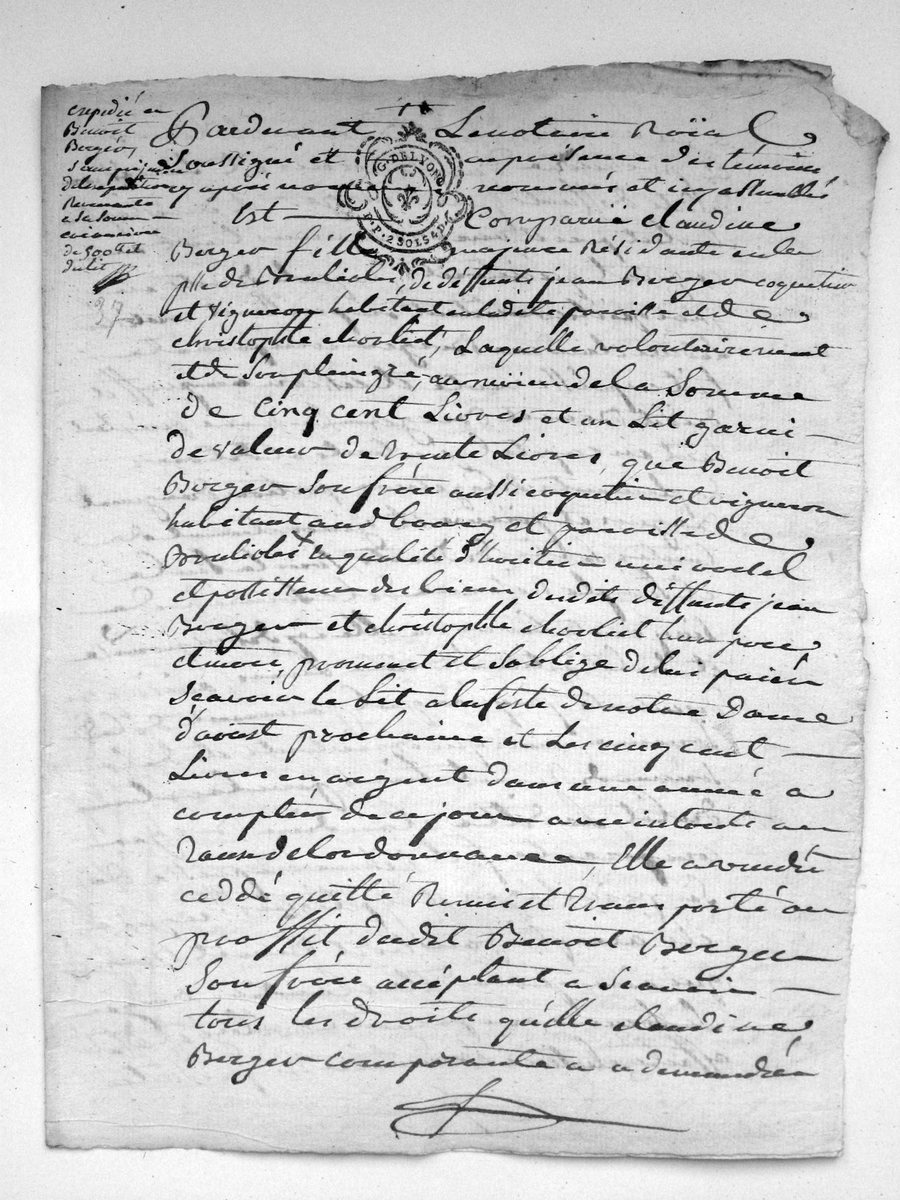 expedié au
Benoit
Berger,
Revenante
a la somme
de 500# et
dulit
37
G. DE LYON
P. P. 2 SOLS 4 D.
Pardevant Le notaire Roïal
soussigné et en présence des témoins
cy après nommés et
Est Comparüe claudine
Berger fille résidante en la
psse de Brulioles, de deffunts jean Berger coquetier
et vigneron habitant en ladite paroisse et de
christophle chorliet, Laquelle volontairement
et de son plein gré, au moïen de la somme
de cinq cent Livres et un Lit garni
de valeur de trente Livres, que Benoit
Berger son frère aussi coquetier et vigneron
habitant au dbourg et paroisse de
Brulioles en qualité d'heritier universel
et possesseur des biens desdits deffunts jean
Berger et christophle chorliet leur pere
et mere, promet et s'oblige de lui païer
scavoir le Lit a la feste de notre Dame
d'aoust prochaine et Les cinq cent
Livres en argent dans une année a
compter de ce jour avec interets au
taux de lordonnance, Elle a vendu
ceddé quitté Remis et transporté au
proffit dudit Benoit Berger
son frère acceptant a scavoir
tous les droits qu'elle claudine
Berger comparante a a demander